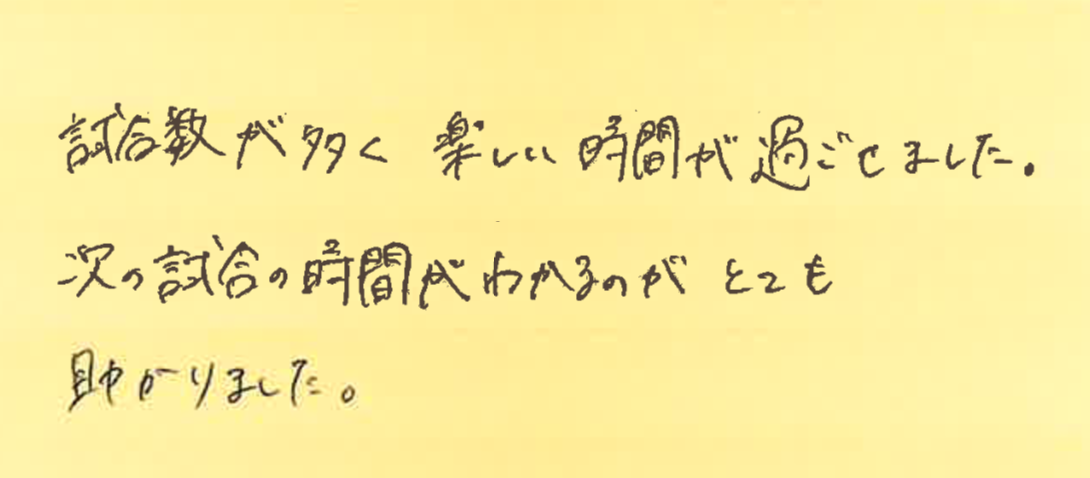 試合数が多く 楽しい時間が過ごせました。
次の試合の時間がわかるのが とても
助かりました。